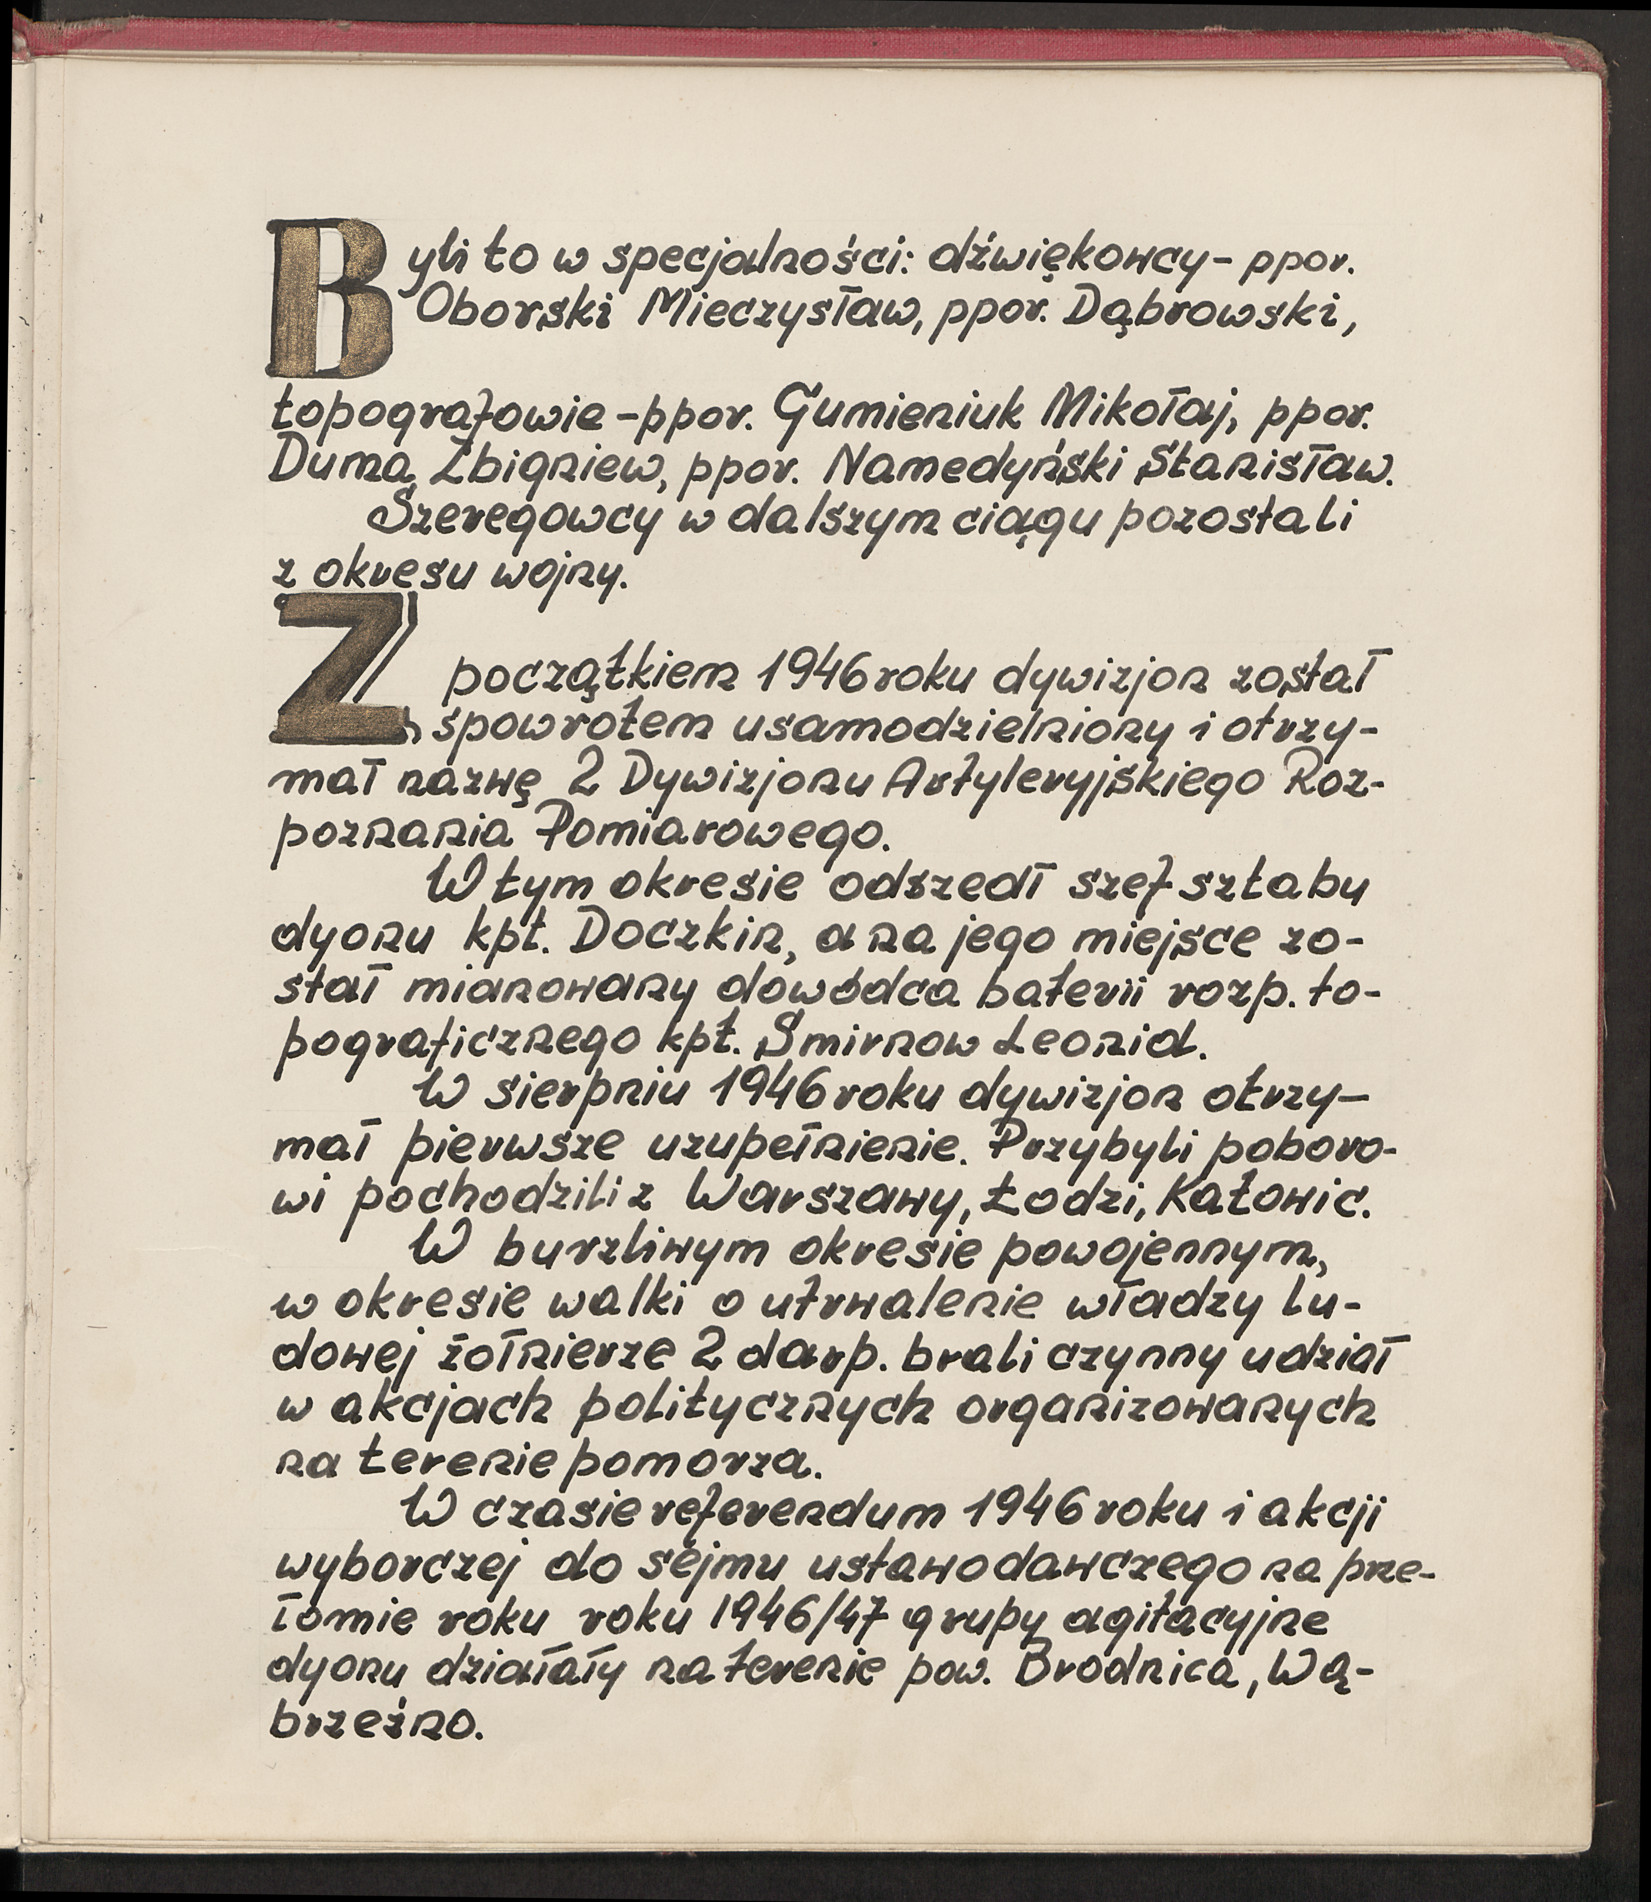 Byli to w specjalności: dźwiękowcy - ppor.
Oborski Mieczysław, ppor. Dąbrowski,
topografowie - ppor. Gumieniuk Mikołaj, ppor.
Duma Zbigniew, ppor. Namedyński Stanisław.
Szeregowcy w dalszym ciągu pozostali
z okresu wojny.
Z początkiem 1946 roku dywizjon został
spowrotem usamodzielniony i otrzy-
mał nazwę 2 Dywizjonu Artyleryjskiego Roz-
poznania Pomiarowego.
W tym okresie odszedł szef sztabu
dyonu kpt. Doczkin, a na jego miejsce zo-
stał mianowany dowódca baterii rozp. to-
pograficznego kpt. Smirnow Leonid.
W sierpniu 1946 roku dywizjon otrzy-
mał pierwsze uzupełnienie. Przybyli poboro-
wi pochodzili z Warszawy, Łodzi, Katowic.
W burzliwym okresie powojennym,
w okresie walki o utrwalenie władzy lu-
dowej żołnierze 2 darp. brali czynny udział
w akcjach politycznych organizowanych
na terenie pomorza.
W czasie referendum 1946 roku i akcji
wyborczej do sejmu ustawodawczego na prze-
łomie roku roku 1946/47 grupy agitacyjne
dyonu działały na terenie pow. Brodnica, Wą-
brzeźno.